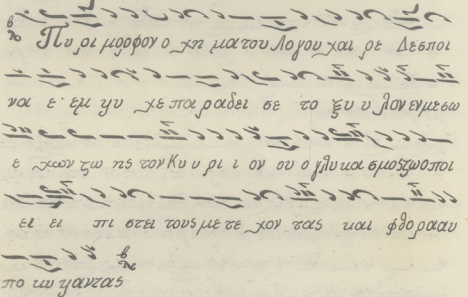 Πυ ρι μορφον ο χη μα του Λογου χαι ρε Δεσποι
να ε εμ ψυ χε πα ρα δει σε το ξυ υ λον εν μεσω
ε χων ζω ης τον Κυ υ ρι ι ον ου ο γλυ κα σμος ζωο ποι
ει ει πι στει τους με τε χον τας και φθο ρα αυ
πο κυ ψαντας